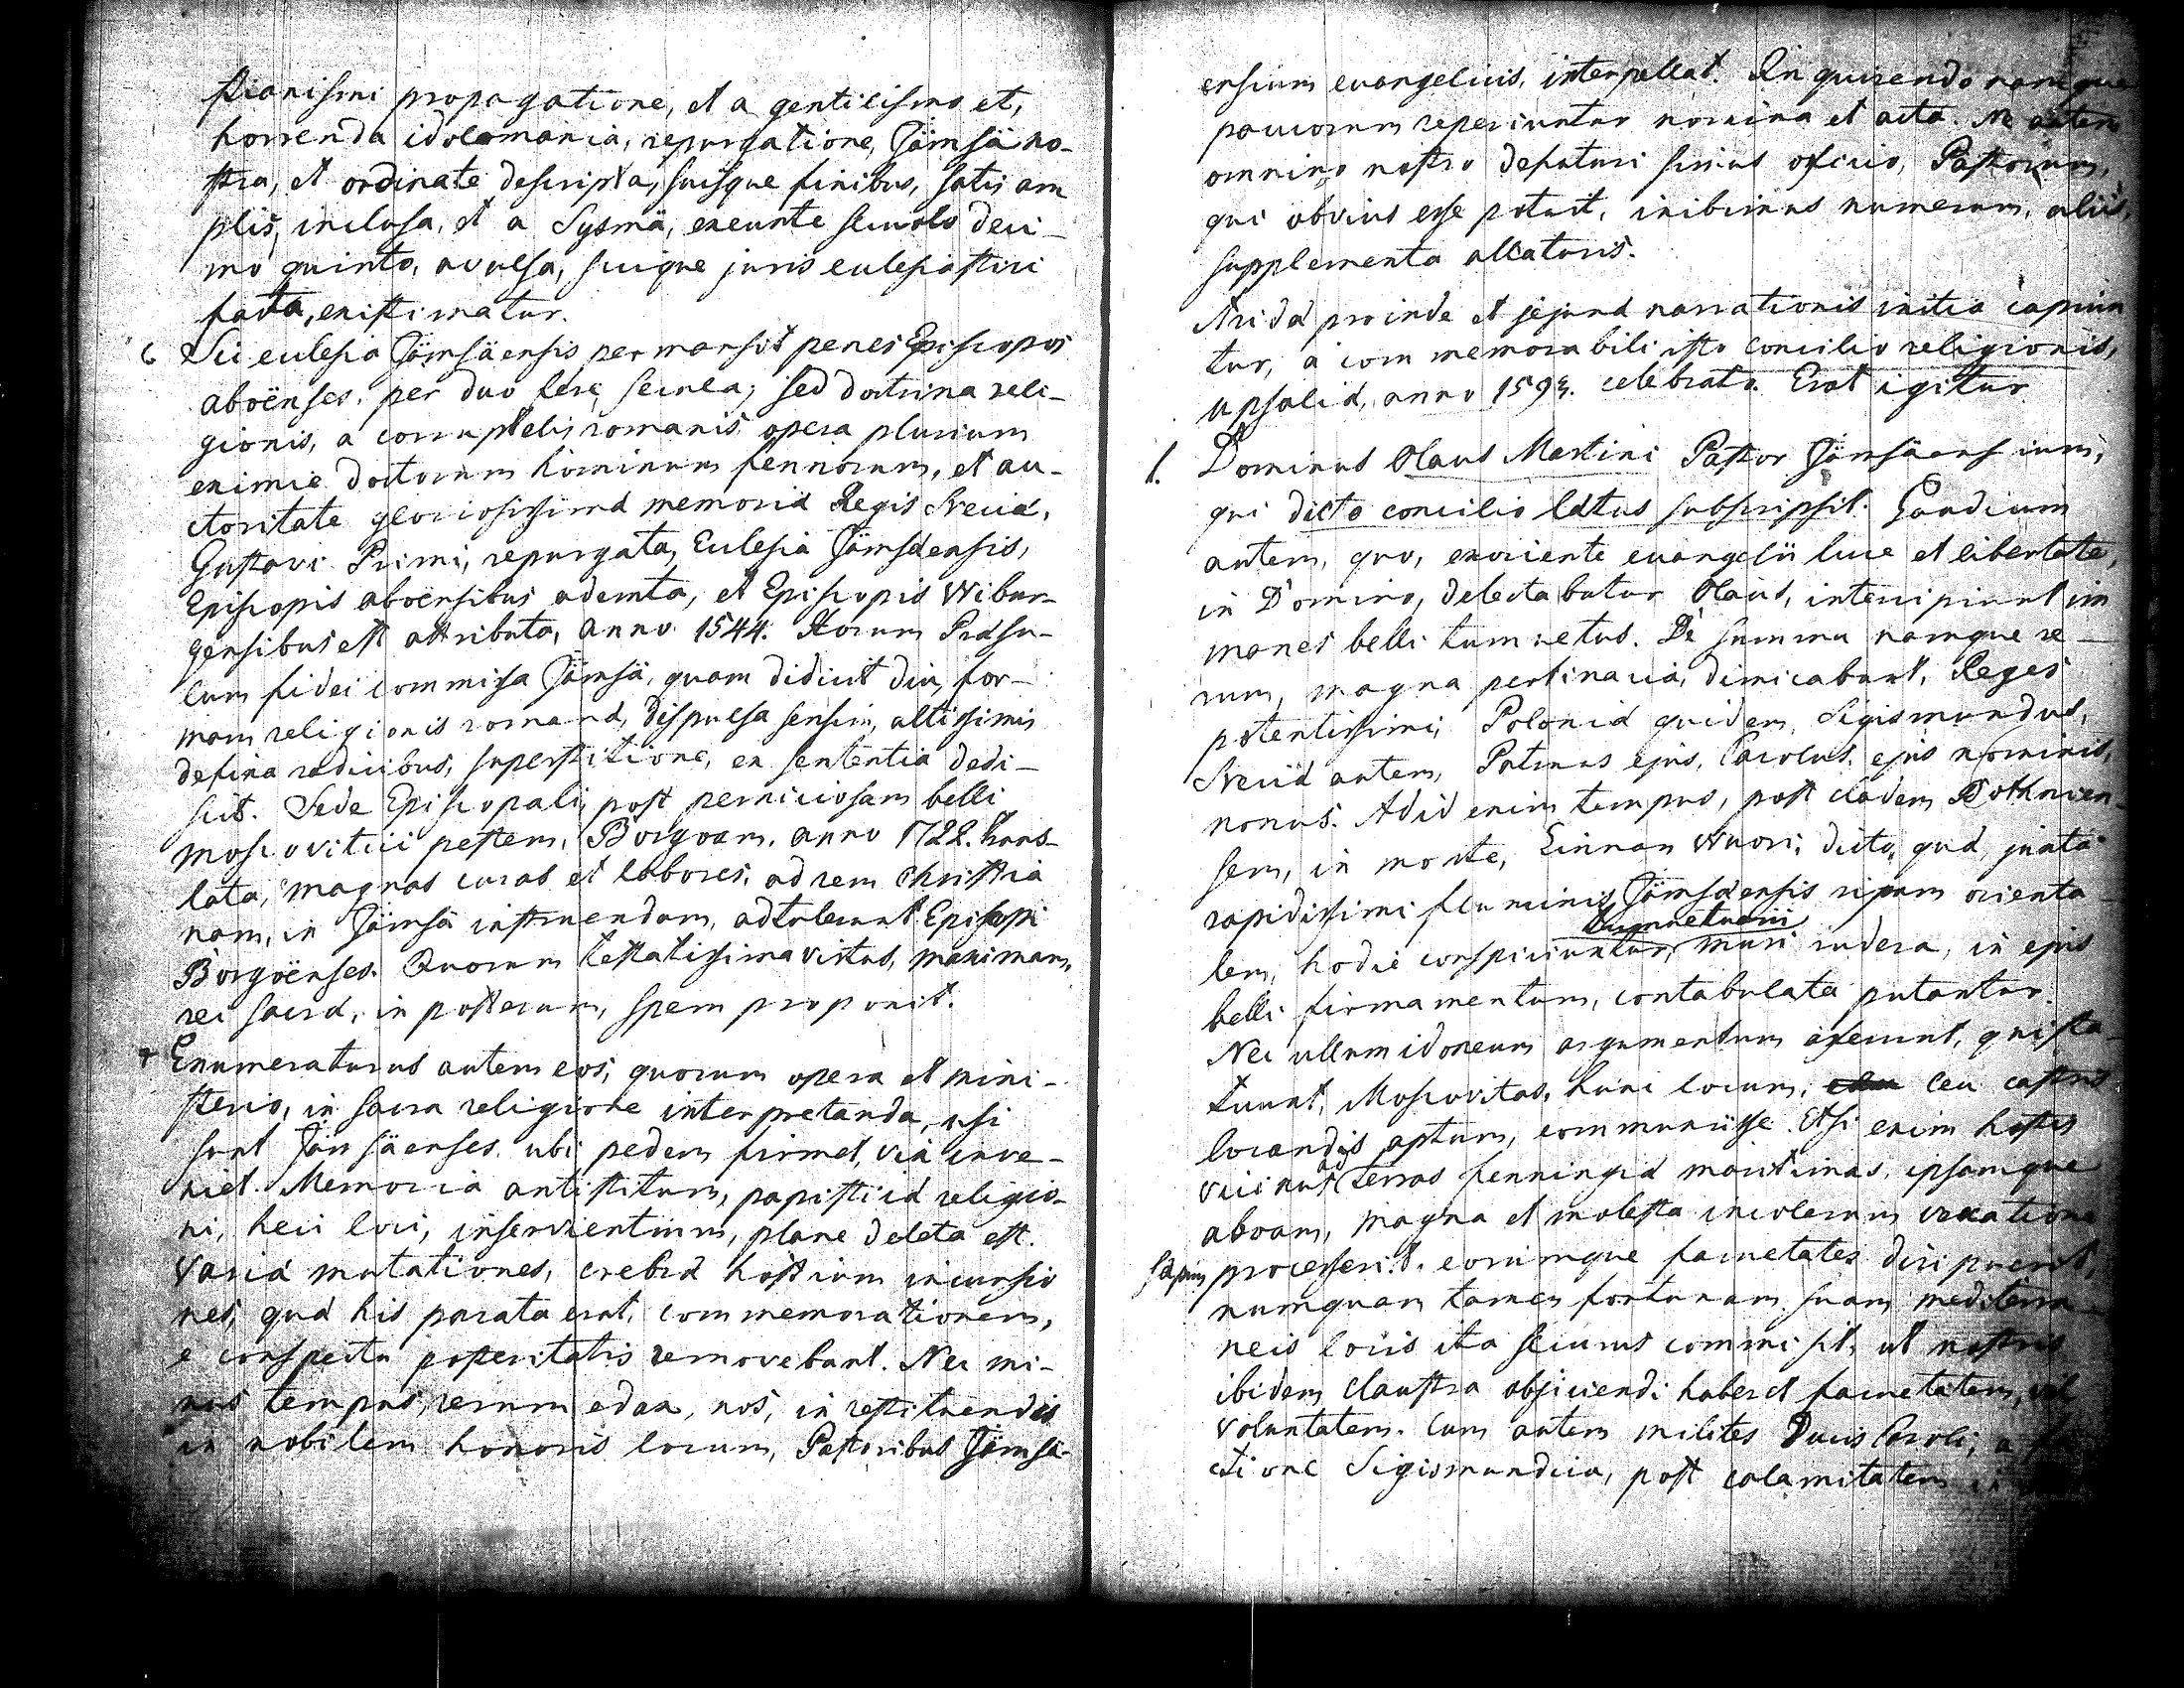 stianismi propagatione, et a gentilismo et,
horrenda idolomania, repurgatione, Jämsä no-
stra, et ordinate descripta, suisque finibus, satis am
plis, inclusa, et a Sysmä, exeunte seculo deci-
mo quinto, avulsa, suique juris eclesiastici
facta, existimatur.
6 Sic eclesia Jämsäensis permansit penes Episcopos
aboënses, per duo fere secula; sed doctrina reli-
gionis, a corruptelis romanis opera plurium
eximie doctorum hominum fennorum, et au-
ctoritate gloriosissimæ memoriæ Regis Sveciæ,
Gustavi Primi, repurgata, Eclesia Jämsäensis,
Episcopis aboënsibus ademta, et Episcopis Wibur-
gensibus est attributa, anno 1544. Horum Præsu-
lum fidei commissa Jämsä, quam didicit diu, for-
mam religionis romanæ, dispulsa sensim, altissimis
defixa radicibus, superstitione, ex sententia dedi-
scit. Sede Episcopali, post perniciosam belli
moscovitici pestem, Borgoam, anno 1722. trans-
lata, magnas curas et labores, ad rem Christia
nam, in Jämsä instruendam, adtulerunt Episcopi
Borgoënses. Quorum testatissima virtus, maximam,
rei sacræ, in posterum, spem proponit.
7 Enumeraturus autem eos, quorum opera et mini-
sterio, in sacra religione interpretanda, usi
sunt Jämsäenses, ubi pedem firmet, vix inve-
niet. Memoria antistitum, papisticæ religio-
ni, heic loci, inservientium, plane deleta est.
Variæ mutationes, crebræ hostium incursio
nes, quæ his parata erat, commemorationem,
e conspectu posteritatis removebant. Nec mi-
nus tempus, rerum edax, nos, in restituendis
in nobilem honoris locum, Pastoribus Jämsä-
ensium evangelicis, interpellat. Inquirendo namque
paucorum reperiuntur nomina et acta. Ne autem
omnino nostro defuturi simus officio, Pastorum,
qui obvius esse potuit, inibimus numerum, aliis,
supplementa allaturis.
Arida proinde et jejuna narrationis initia capiun
tur, a commemorabili isto concilio religionis,
Upsaliæ, anno 1593. celebrato. Erat igitur
1. Dominus Olaus Martini Pastor Jämsäensium,
qui dicto concilio lætus subscripsit. Gaudium
autem, quo, exoriente evangelii luce et libertate,
in Domino, delectabatur Olaus, intercipiunt im
manes belli tumultus. De summa namque re-
rum, magna pertinacia, dimicabant, Reges
potentissimi, Poloniæ quidem, Sigismundus,
Sveciæ autem, Patruus ejus, Carolus, ejus nominis,
nonus. Ad id enim tempus, post cladem Bothnien-
sem, in monte, Linnan Wuori, dicto, quæ, juxta
rapidissimi fluminis Jämsäensis ripam orienta-
lem, hodie conspiciuntur, muri rudera, in ejus
belli firmamentum, contabulata putantur.
Nec ullum idoneum argumentum aferunt, qui sta-
tuunt, Moscovitas, hunc locum, ceu castris
locandis aptum, communiisse. Etsi enim hostis
vicinus ad terras fenningiæ maritimas, ipsamque
aboam, magna et molesta incolarum vexatione
sæpius processerit, eorumque facultates diripuerit,
numquam tamen fortunam suam mediterra-
neis locis ita securus commisit, ut nostris
ibidem claustra objiciendi haberet facultatem, vel
voluntatem. Cum autem milites Ducis Caroli, a
ctione Sigismundica, post calamitatem